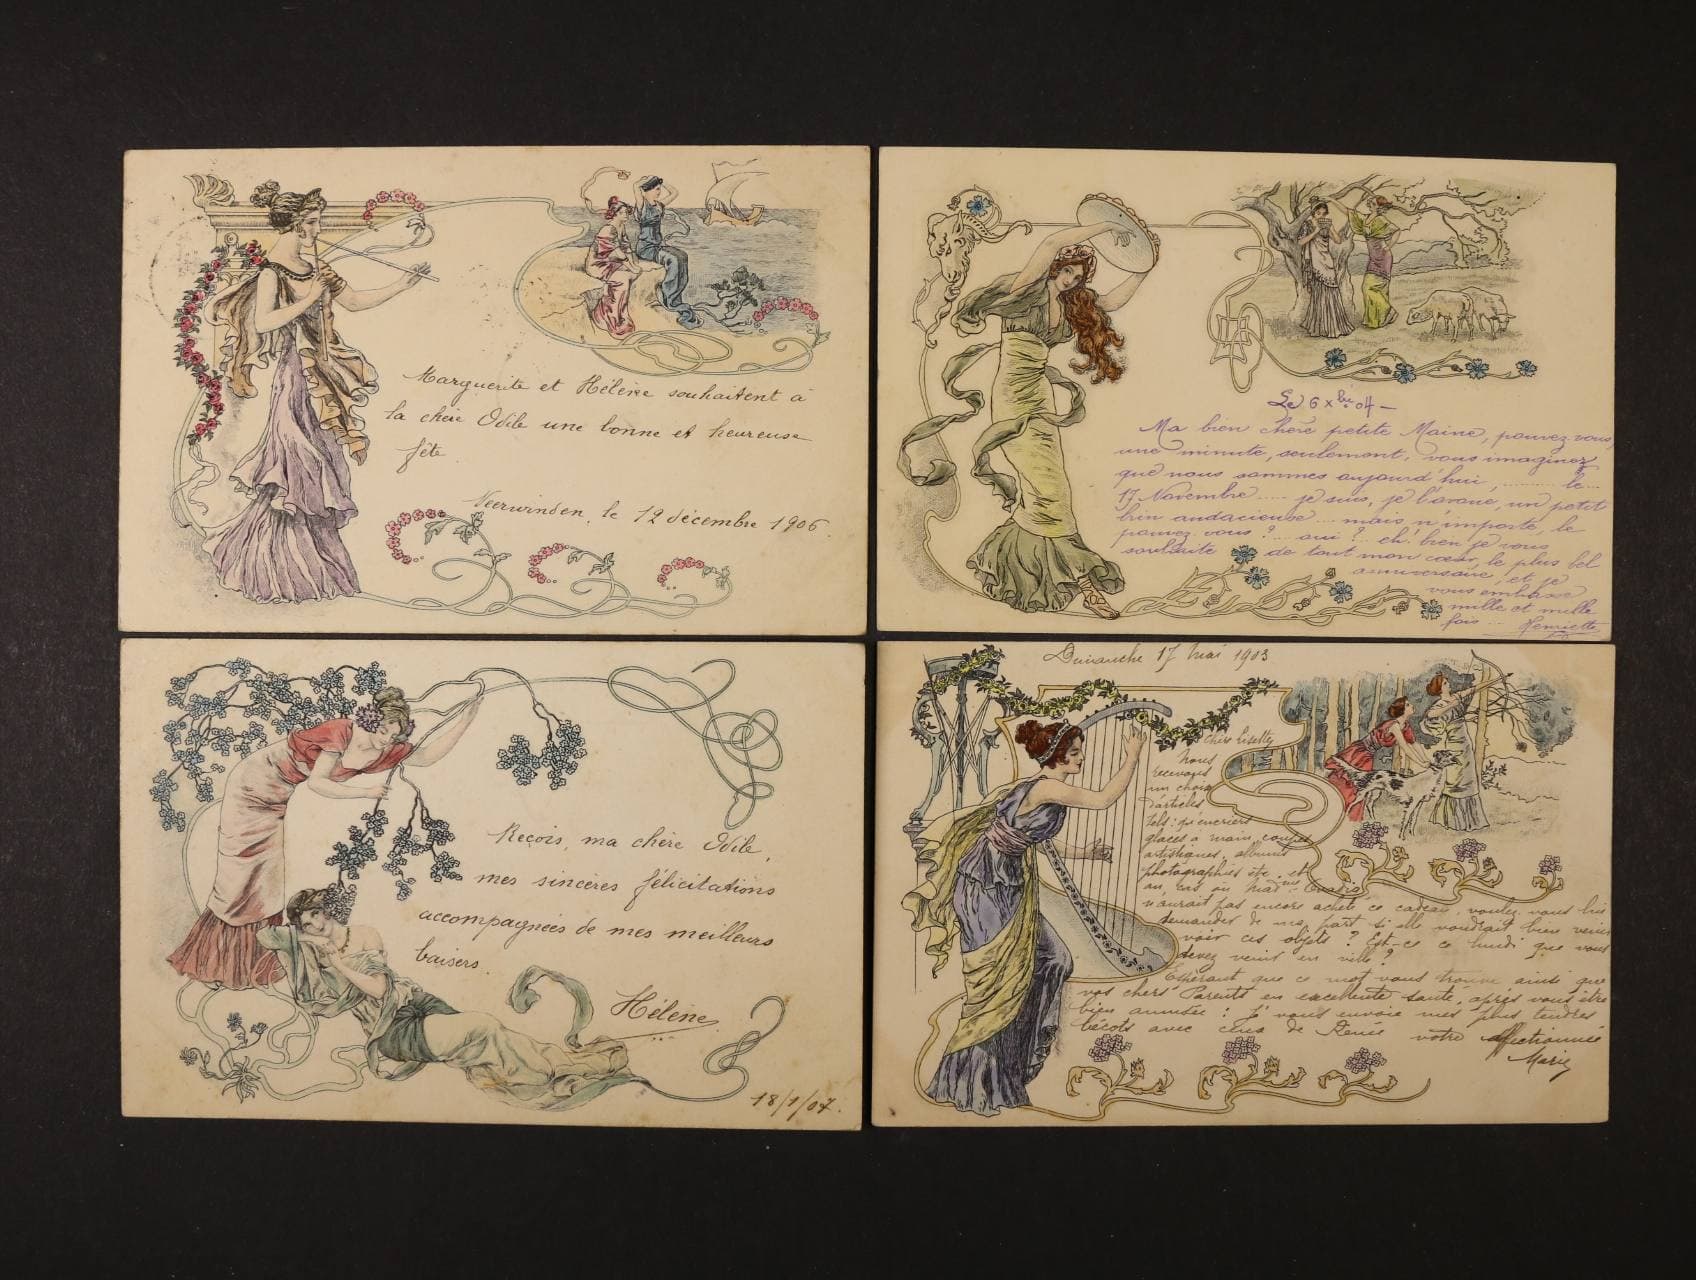 Marguerite et Hélène souhaitent a
la chère Odile une bonne et heureuse
fête.
Neerwinden, le 12 décembre 1906.
Le 6 Xbre 04 –
Ma bien chère petite Maine, pouvez-vous,
une minute, seulement, vous imaginez
que nous sommes aujourd'hui, ......... le...
17 Novembre ..... je suis, je l'avoue, un petit
brin audacieuse ... mais n'importe, le
pouvez vous ? ... oui ? .. eh. bien je vous
souhaite de tout mon cœur, le plus bel
anniversaire, et je
vous embrasse
mille et mille
fois ... Henriette
Reçois, ma chère Odile,
mes sincères félicitations
accompagnées de mes meilleurs
baisers.
Hélène
18/1/07.
Dimanche 17 Mai 1903
Chère Lisette,
Nous
recevons
un choix
d'articles
tels: qu'encriers
glaces à main, coupes
artistiques, albums
photographies etc. et
au cas où Mad
n'aurait pas encore acheté ce cadeau, voulez-vous lui
demander de ma part si elle voudrait bien venir
voir ces objets ? Est-ce ce lundi que vous
devez venir en ville ?
Espérant que ce mot vous trouve ainsi que
vos chers Parents en excellente santé, après vous être
bien amusée ! J'vous envoie mes plus tendres
bécots avec ceux de Renée
votre affectionnée
Marie